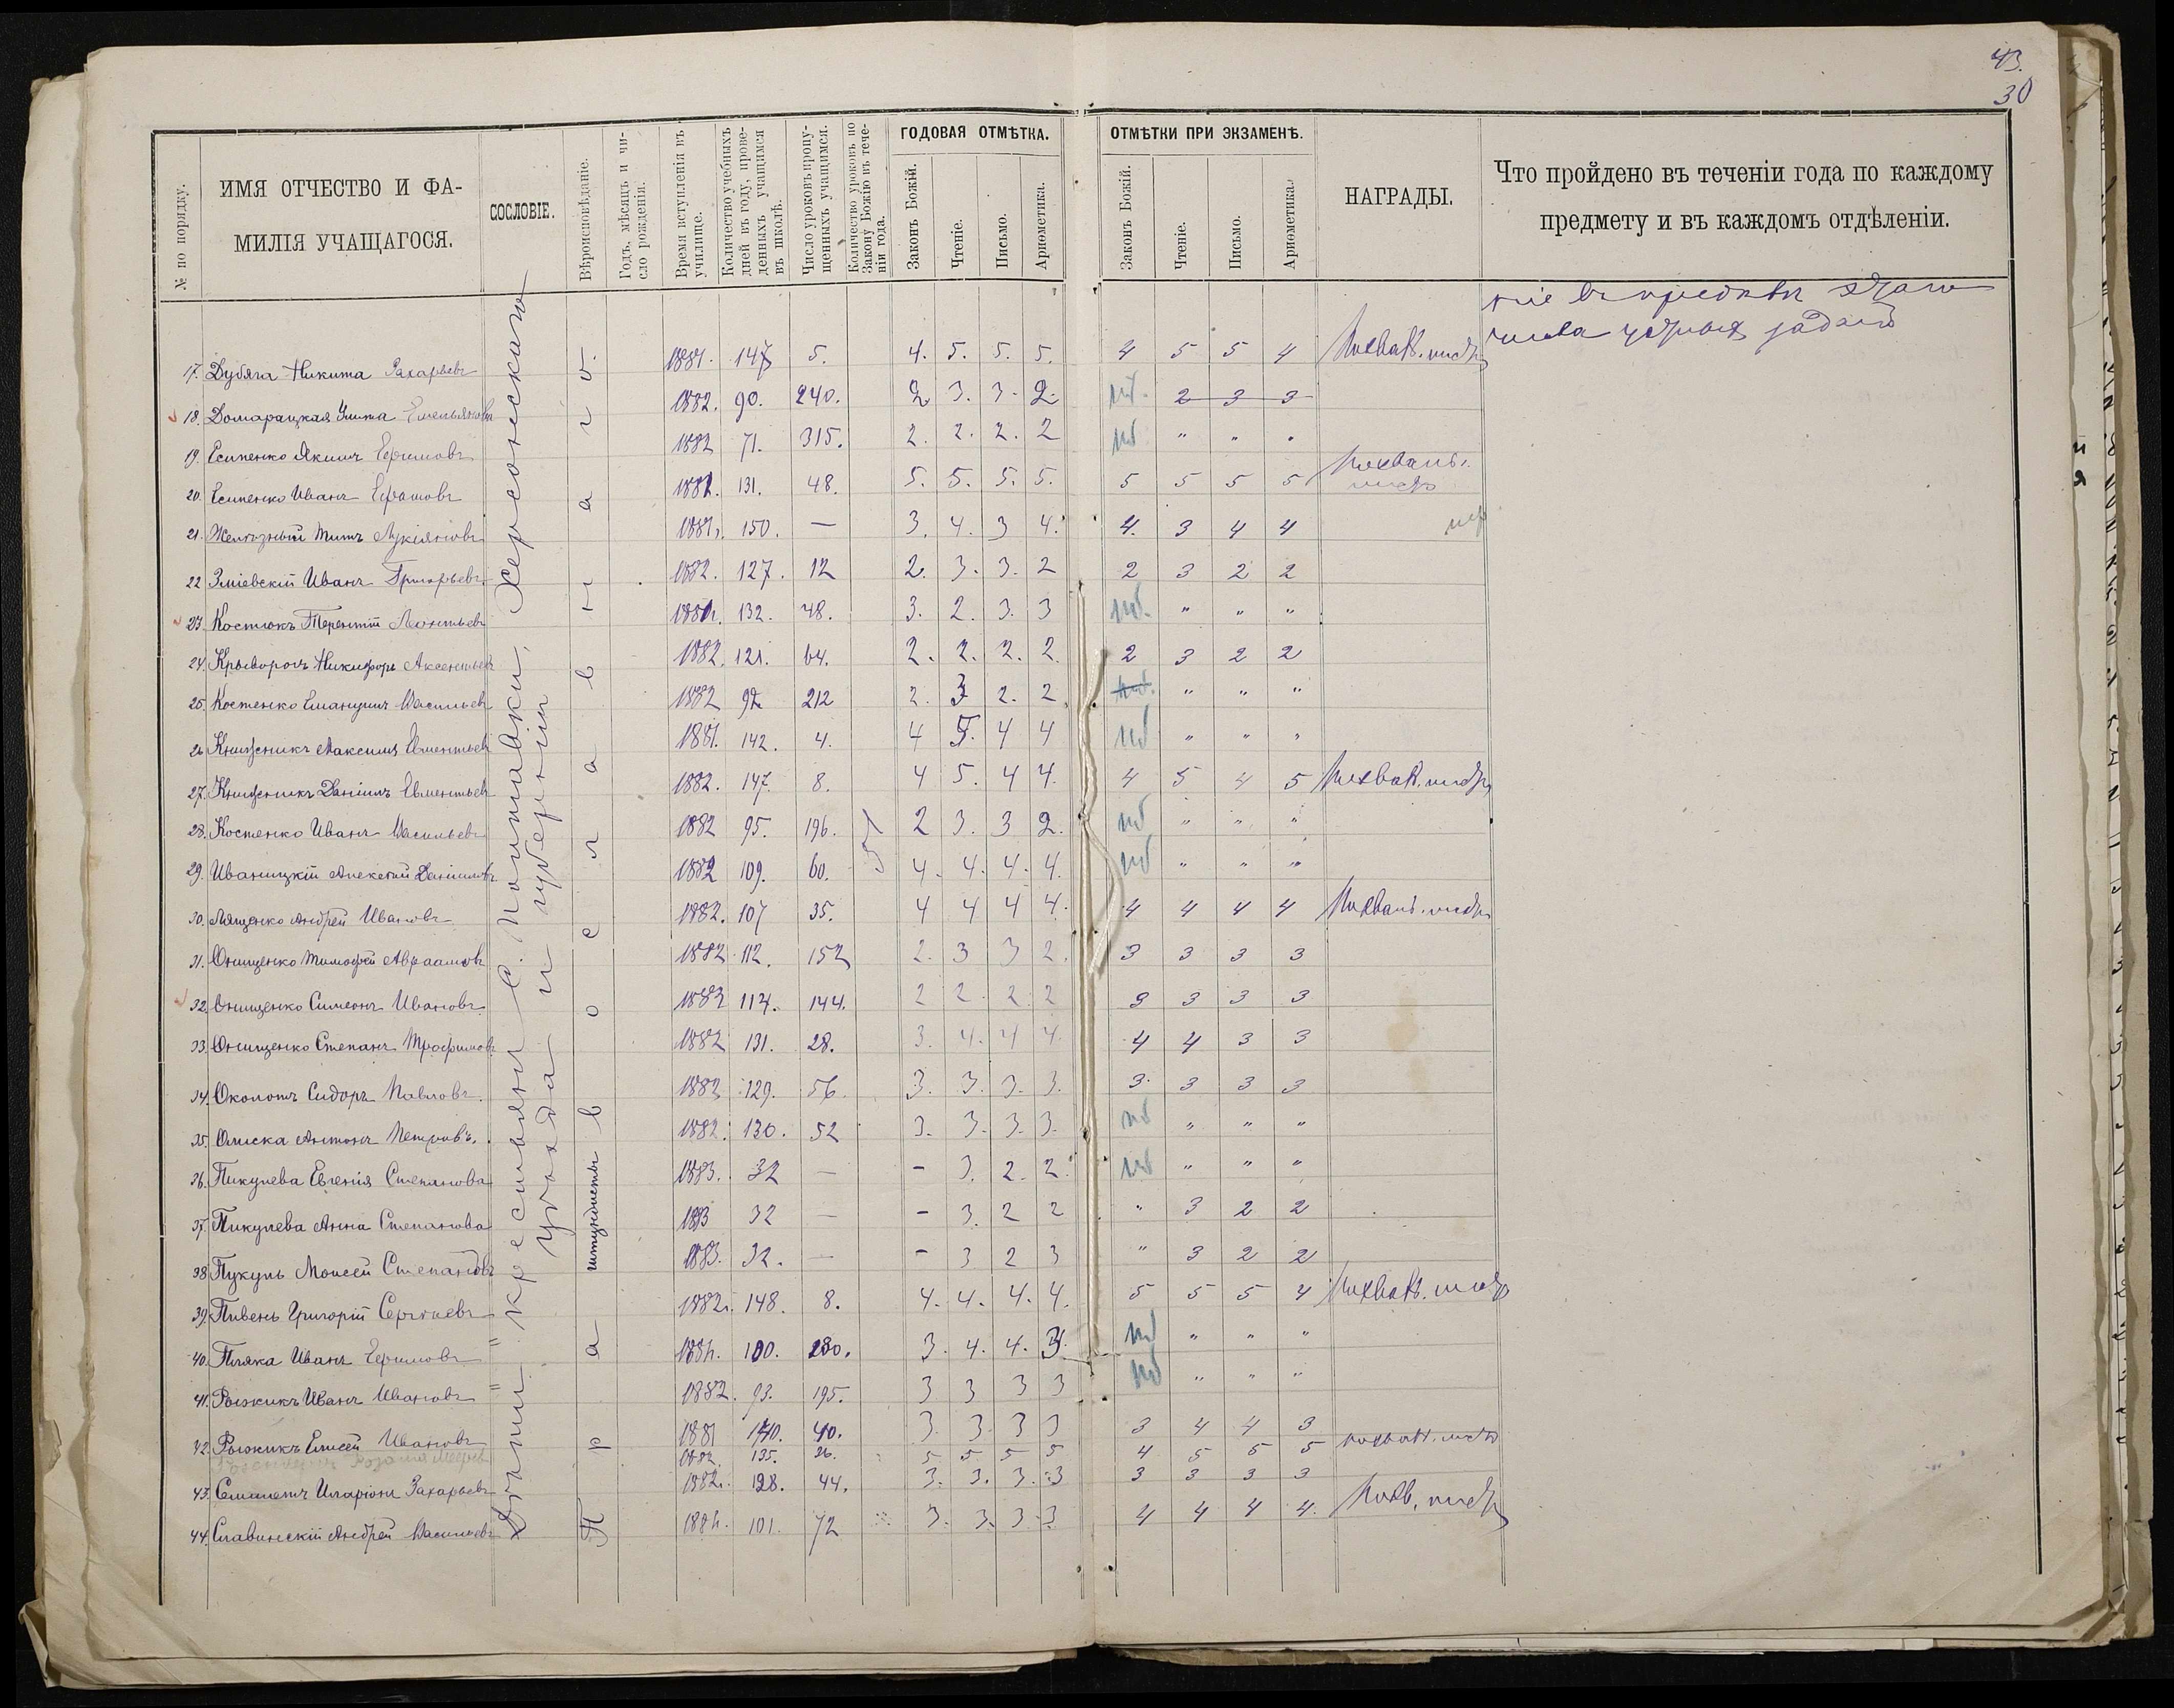 43.
30
№ по порядку.
ИМЯ ОТЧЕСТВО И ФА-
МИЛІЯ УЧАЩАГОСЯ.
СОСЛОВІЕ.
Вѣроисповѣданіе.
Годъ, мѣсяцъ и чи-
сло рожденія.
Время вступленія въ
училище.
Количество учебныхъ
дней въ году, прове-
денныхъ учащимся
въ школѣ.
Число уроковъ пропу-
щенныхъ учащимся.
Количество уроковъ по
Закону Божію въ тече-
ніи года.
ГОДОВАЯ ОТМѢТКА.
Законъ Божій.
Чтеніе.
Письмо.
Ариѳметика.
ОТМѢТКИ ПРИ ЭКЗАМЕНѢ.
Законъ Божій.
Чтеніе.
Письмо.
Ариѳметика.
НАГРАДЫ.
Что пройдено въ теченіи года по каждому
предмету и въ каждомъ отдѣленіи.
Дѣти крестьянъ с. Полтавки, Херсонскаго
уѣзда и губерніи
Православнаго
штундисты
17. Дубяга Никита Захарьевъ 1881. 147 5. 4. 5. 5. 5. 4 5 5 4 Похвал. листъ
18. Домарацкая Улита Емельянова 1882. 90. 240. 2 3. 3. 2. нб. 2 3 3
19. Есипенко Якимъ Ефимовъ 1882 71. 315. 2. 2. 2. 2 нб " " "
20. Есипенко Иванъ 1882. 131. 48. 5. 5. 5. 5. 5 5 5 5 Похвальн. листъ
21. Желѣзный Титъ Лукіяновъ 1881. 150. — 3. 4. 3 4. 4. 3 4 4
22 Зміевскій Иванъ Григорьевъ 1882. 127. 12 2. 3. 3. 2 2 3 2 2
23. Костюкъ Терентій Леонтьевъ 132. 48. 3. 2. 3. 3 нб. " " "
24. Криворотъ Никифоръ Аксентьевъ 1882. 121. 64. 2. 2. 2. 2. 2 3 2 2
25. Костенко Васильевъ 1882 92 212 2. 3 2. 2 нб. " " "
26 Книжникъ Максимъ Евментьевъ 1881. 142. 4. 4 5. 4 4 нб " " "
27. Книжникъ Даніилъ Евментьевъ 1882. 147. 8. 4 5. 4 4. 4 5 4 5 Похвал. листъ
28. Костенко Иванъ Васильевъ 1882 95. 196. 2 3. 3 2. нб " " "
29. Иваницкій Алексѣй Даніиловъ 1882 109. 60. 4. 4. 4. 4. нб " " "
30. Лященко Андрей Ивановъ 1882. 107 35. 4 4 4 4. 4 4 4 4 Похвальн. листъ
31. Онищенко Тимофей Авраамовъ 1882 112. 152 2. 3 3 2. 3 3 3 3
32. Онищенко Симеонъ Ивановъ 1882 114. 144. 2 2. 2. 2 3 3 3 3
33. Онищенко Степанъ Трофимовъ 1882 131. 28. 3. 4. 4 4 4 4 3 3
34. Околотъ Сидоръ Павловъ. 1882 129. 56. 3. 3. 3. 3. 3. 3 3 3
35. Олиска Антонъ Петровъ. 1882. 130. 52 3. 3. 3. 3. нб " " "
36. Пикулева Евгенія Степанова 1883. 32 — - 3. 2. 2. нб " " "
37. Пикулева Анна Степанова 1883 32 — - 3. 2 2 " 3 2 2
38 Пукуль Моисей Степановъ 1883. 32. — - 3 2 3 " 3 2 2
39. Пивень Григорій Сергѣевъ 1882. 148. 8. 4. 4. 4. 4. 5 5 5 4 Похвал. листъ
40. Пляка Иванъ Ефимовъ 100. 280. 3. 4. 4. 3. нб " " "
41. Рыжикъ Иванъ Ивановъ 1882. 93. 195. 3 3 3 3 нб " " "
42. Рыжикъ Елисей Ивановъ 1881 140. 40. 3. 3. 3 3 3 4 4 3
1882. 135. 26. 5 5 5 5 4 5 5 5 похвальн. листъ
43. Захарьевъ 1882. 128. 44. 3. 3. 3. 3 3 3 3 3
44. Славинскій Андрей Васильевъ 101. 72 3. 3. 3. 3 4 4 4 4. Похв. листъ
числа задачъ